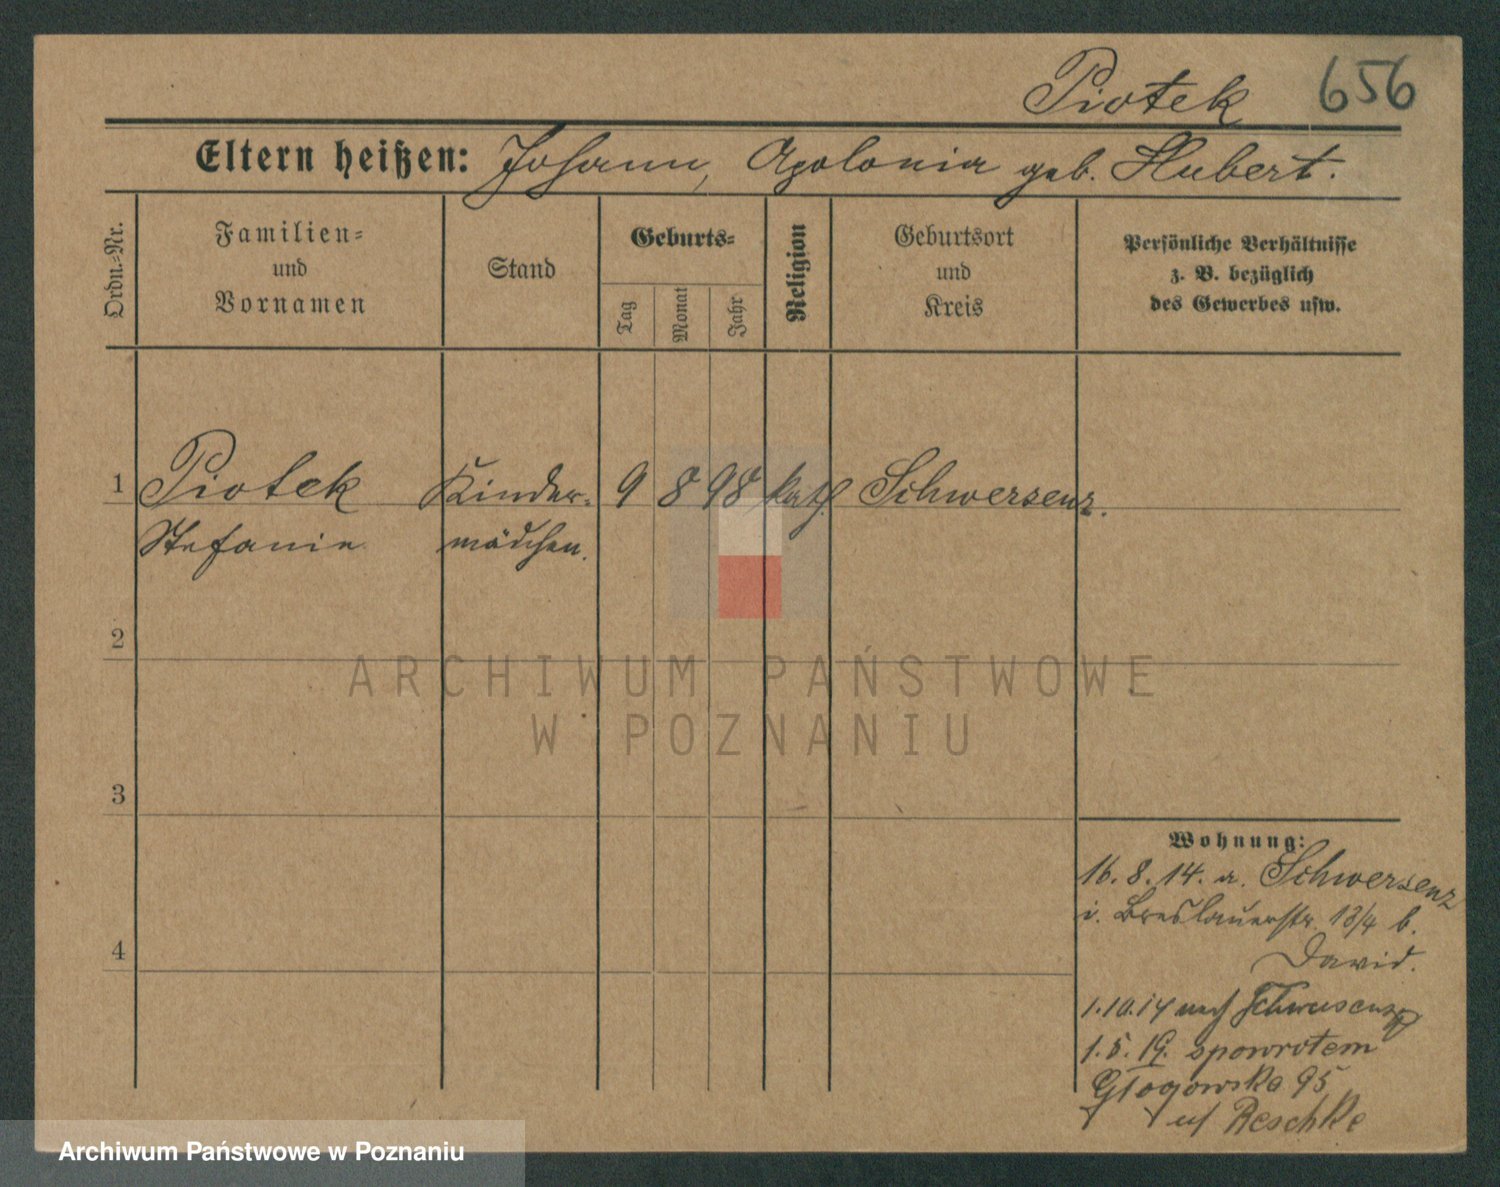 Piotek 656
Eltern heißen: Johann, Apolonia geb. Hubert.
Ordn.-Nr.
Familien-
und
Vornamen
Stand
Geburts-
Tag
Monat
Jahr
Religion
Geburtsort
und
Kreis
Persönliche Verhältnisse
z. B. bezüglich
des Gewerbes usw.
1 Piotek Kinder- 9 8 98 kath. Schwersenz.
Stefanie mädchen.
2
3
4
ARCHIWUM PAŃSTWOWE
W POZNANIU
Wohnung:
16. 8. 14. a. Schwersenz
i. Breslauerstr. 13/4 b.
David.
1.10.14 nach Schwersenz
1.5.19. spowrotem
Głogowska 95
u/ Reschke
Archiwum Państwowe w Poznaniu